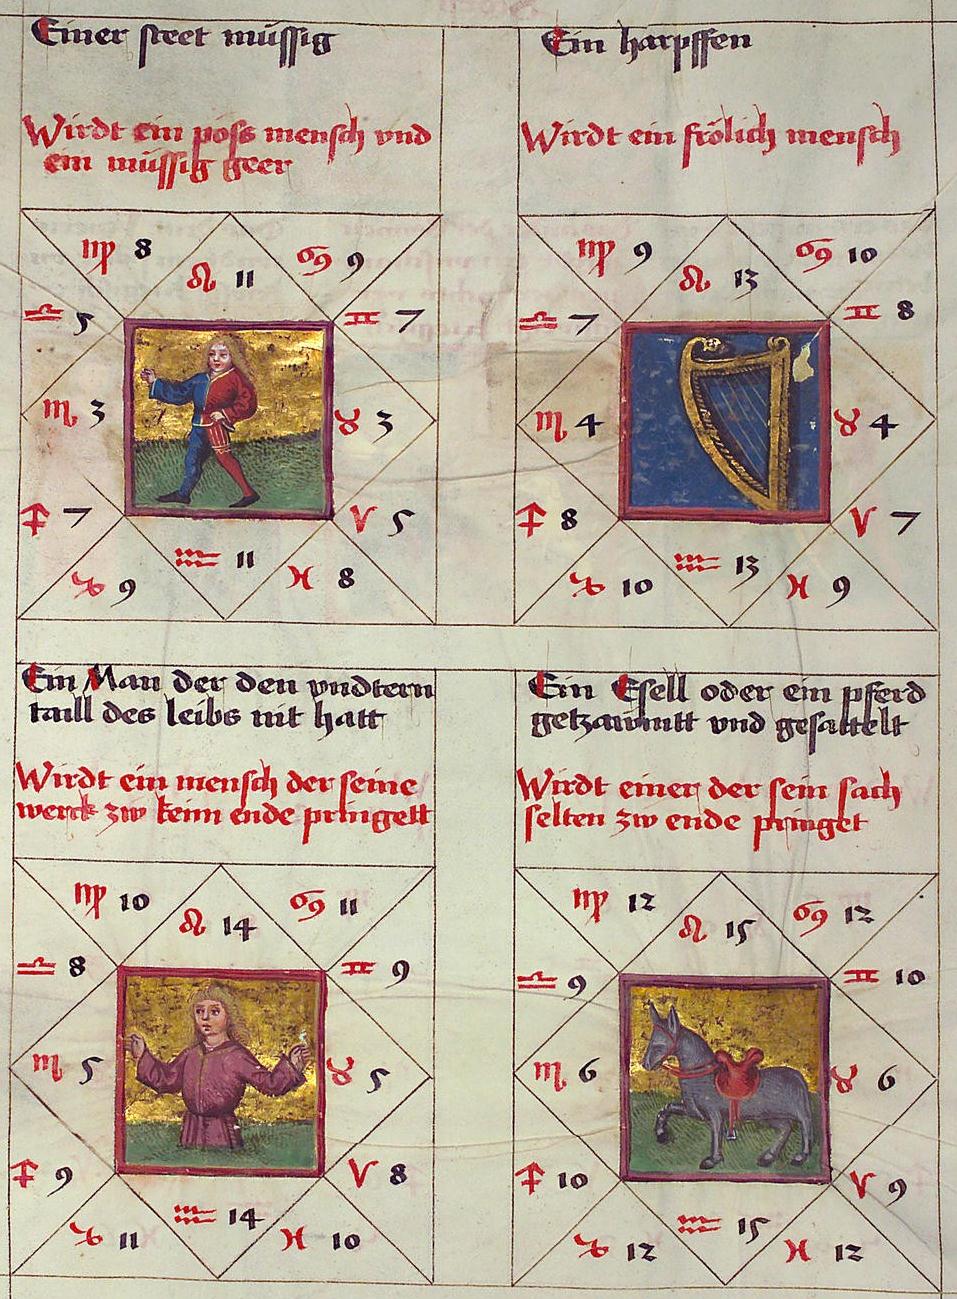 Einer steet müssig
Wirdt ein pöss mensch vnd
ein müssig geer
♍ 8
♌ 11
♋ 9
♎ 5
♊ 7
♏ 3
♉ 3
♐ 7
♈ 5
♑ 9
♒ 11
♓ 8
Ein harpffen
Wirdt ein frölich mensch
♍ 9
♌ 13
♋ 10
♎ 7
♊ 8
♏ 4
♉ 4
♐ 8
♈ 7
♑ 10
♒ 13
♓ 9
Ein Man der den vndtern
taill des leibs nit hatt
Wirdt ein mensch der seine
werck zw keim ende pringett
♍ 10
♌ 14
♋ 11
♎ 8
♊ 9
♏ 5
♉ 5
♐ 9
♈ 8
♑ 11
♒ 14
♓ 10
Ein Esell oder ein pferd
getzawmtt vnd gesattelt
Wirdt einer der sein sach
selten zw ende pringet
♍ 12
♌ 15
♋ 12
♎ 9
♊ 10
♏ 6
♉ 6
♐ 10
♈ 9
♑ 12
♒ 15
♓ 12